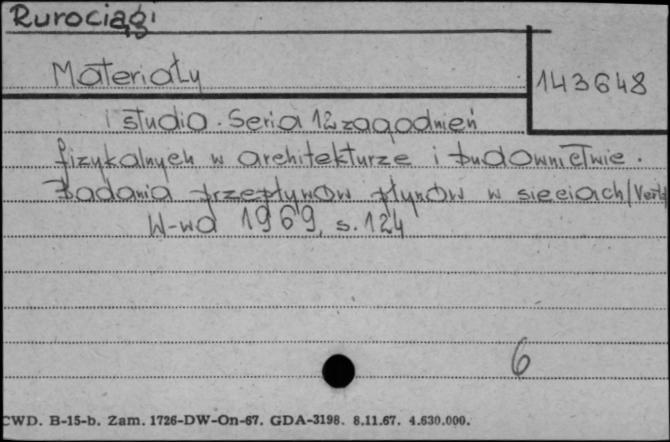 Rurociągi
Materiały
143648
i studia. Seria 12 zagadnień
fizykalnych w architekturze i budownictwie.
Badania przepływów płynów w sieciach/
W-wa 1969, s. 124
6
CWD. B-15-b. Zam. 1726-DW-On-67. GDA-3198. 8.11.67. 4.630.000.